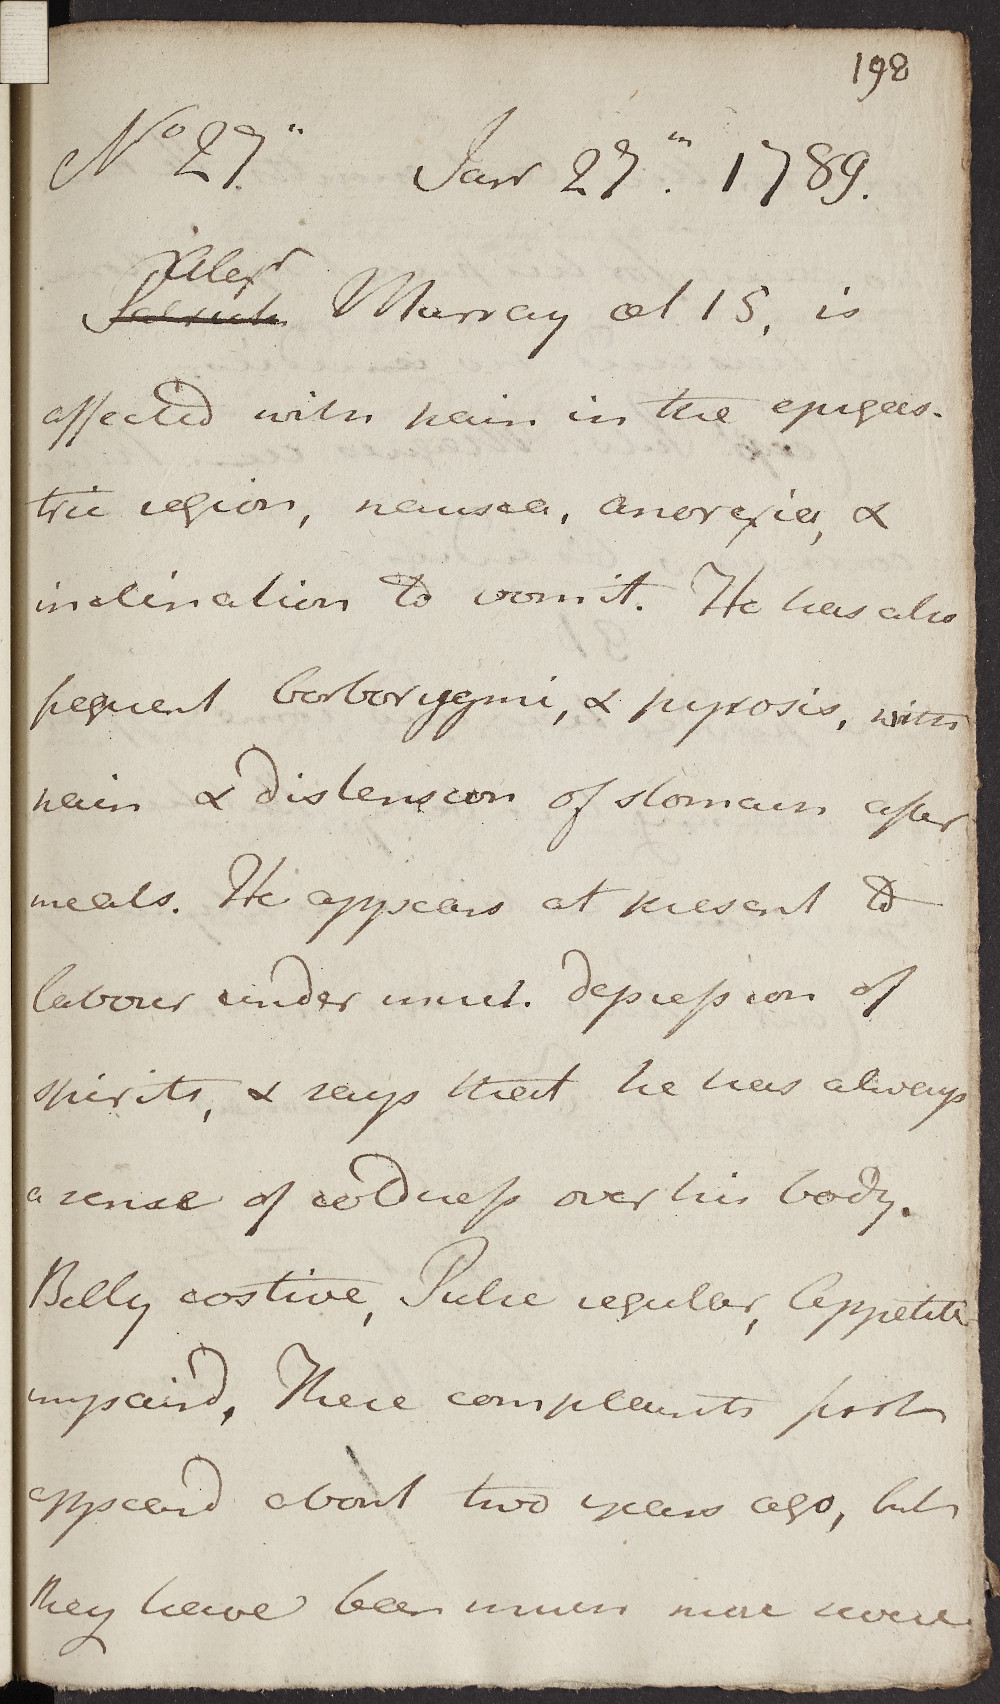 198
No 27" Janr 27th. 1789.
Alexr
Murray æt 15, is
affected with pain in the epigas-
tric region, nausea, anorexia, &
inclination to vomit. He has also
frequent borborygmi, & pyrosis, with
pain & distension of stomach after
meals. He appears at present to
labour under much depression of
spirits, & says that he has always
a sense of coldness over his body.
Belly costive, Pulse regular, Appetite
impaird, These complaints first
appeard about two years ago, but
they have been much more severe